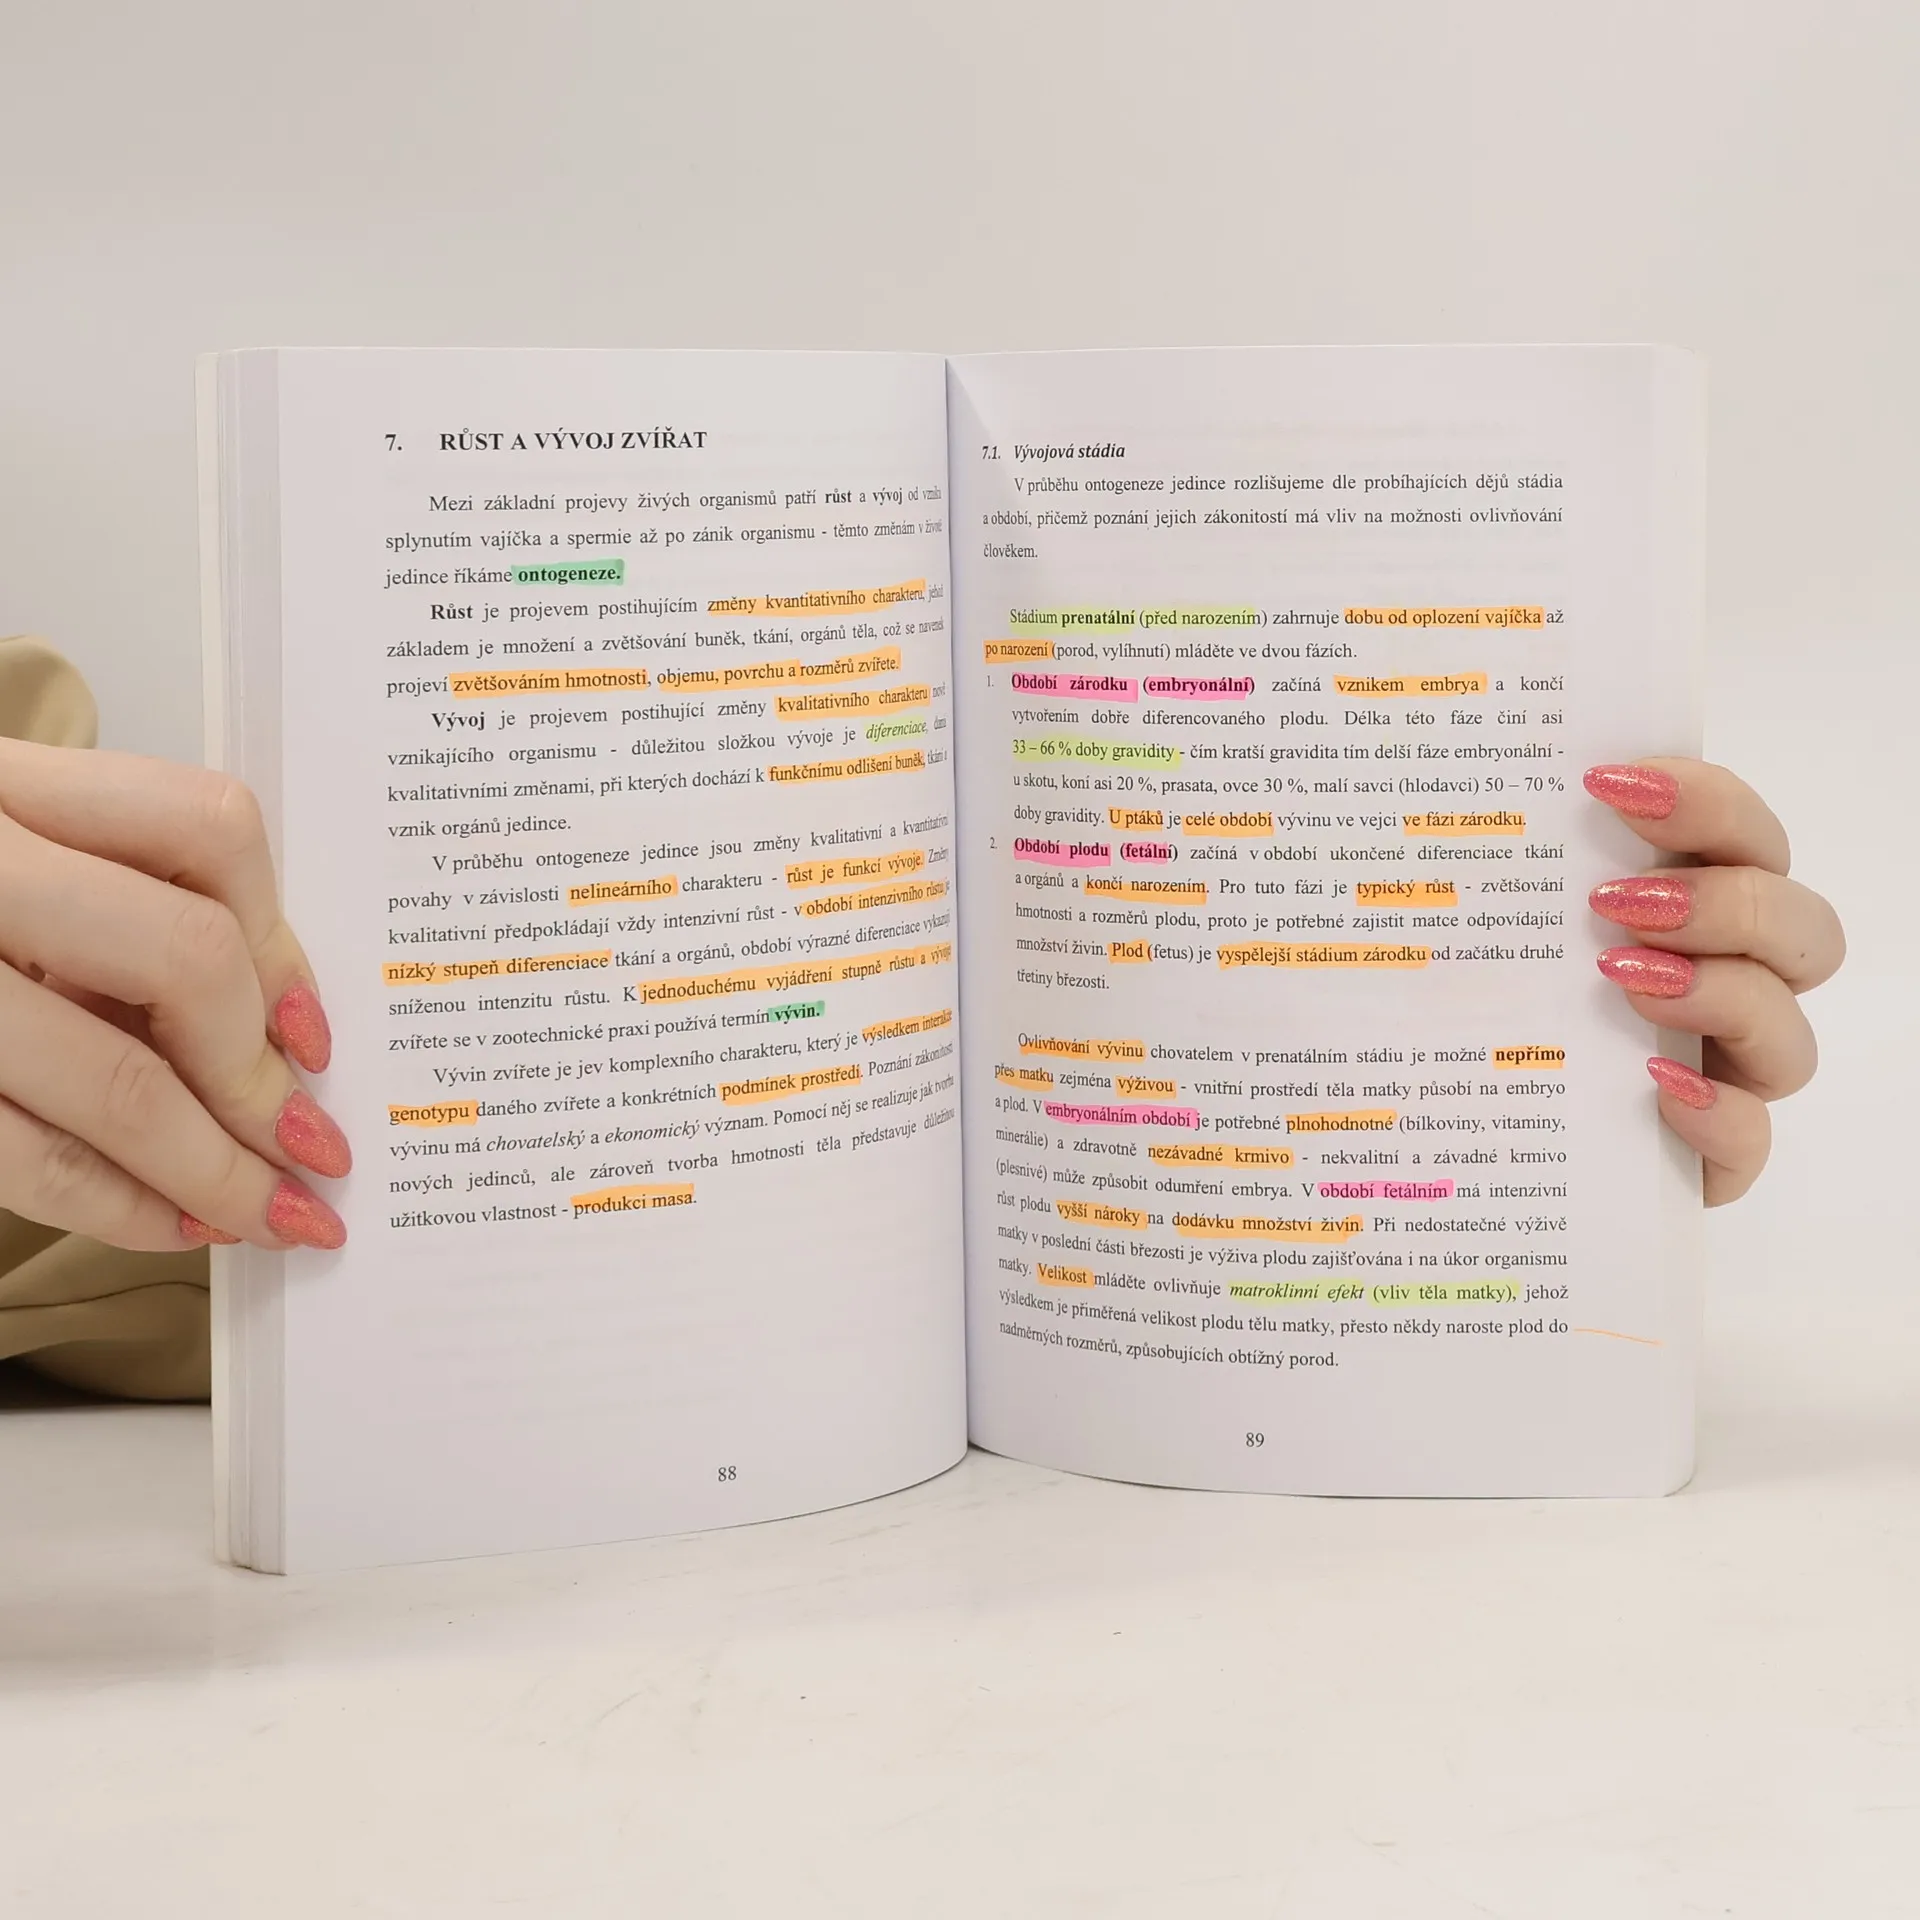 7. RŮST A VÝVOJ ZVÍŘAT
Mezi základní projevy živých organismů patří růst a vývoj od vzniku
splynutím vajíčka a spermie až po zánik organismu - těmto změnám v životě
jedince říkáme ontogeneze.
Růst je projevem postihujícím změny kvantitativního charakteru, jehož
základem je množení a zvětšování buněk, tkání, orgánů těla, což se navenek
projeví zvětšováním hmotnosti, objemu, povrchu a rozměrů zvířete.
Vývoj je projevem postihující změny kvalitativního charakteru nově
vznikajícího organismu - důležitou složkou vývoje je diferenciace,
kvalitativními změnami, při kterých dochází k funkčnímu odlišení buněk, tkání a
vznik orgánů jedince.
V průběhu ontogeneze jedince jsou změny kvalitativní a kvantitativní
povahy v závislosti nelineárního charakteru - růst je funkcí vývoje. Změny
kvalitativní předpokládají vždy intenzivní růst - v období intenzivního růstu je
nízký stupeň diferenciace tkání a orgánů, období výrazné diferenciace vykazují
sníženou intenzitu růstu. K jednoduchému vyjádření stupně růstu a vývoje
zvířete se v zootechnické praxi používá termín vývin.
Vývin zvířete je jev komplexního charakteru, který je výsledkem interakce
genotypu daného zvířete a konkrétních podmínek prostředí. Poznání zákonitostí
vývinu má chovatelský a ekonomický význam. Pomocí něj se realizuje jak tvorba
nových jedinců, ale zároveň tvorba hmotnosti těla představuje důležitou
užitkovou vlastnost - produkci masa.
88
7.1. Vývojová stádia
V průběhu ontogeneze jedince rozlišujeme dle probíhajících dějů stádia
a období, přičemž poznání jejich zákonitostí má vliv na možnosti ovlivňování
člověkem.
Stádium prenatální (před narozením) zahrnuje dobu od oplození vajíčka až
po narození (porod, vylíhnutí) mláděte ve dvou fázích.
1. Období zárodku (embryonální) začíná vznikem embrya a končí
vytvořením dobře diferencovaného plodu. Délka této fáze činí asi
33 – 66 % doby gravidity - čím kratší gravidita tím delší fáze embryonální -
u skotu, koní asi 20 %, prasata, ovce 30 %, malí savci (hlodavci) 50 – 70 %
doby gravidity. U ptáků je celé období vývinu ve vejci ve fázi zárodku.
2. Období plodu (fetální) začíná v období ukončené diferenciace tkání
a orgánů a končí narozením. Pro tuto fázi je typický růst - zvětšování
hmotnosti a rozměrů plodu, proto je potřebné zajistit matce odpovídající
množství živin. Plod (fetus) je vyspělejší stádium zárodku od začátku druhé
třetiny březosti.
Ovlivňování vývinu chovatelem v prenatálním stádiu je možné nepřímo
přes matku zejména výživou - vnitřní prostředí těla matky působí na embryo
a plod. V embryonálním období je potřebné plnohodnotné (bílkoviny, vitaminy,
minerálie) a zdravotně nezávadné krmivo - nekvalitní a závadné krmivo
(plesnivé) může způsobit odumření embrya. V období fetálním má intenzivní
růst plodu vyšší nároky na dodávku množství živin. Při nedostatečné výživě
matky v poslední části březosti je výživa plodu zajišťována i na úkor organismu
matky. Velikost mláděte ovlivňuje matroklinní efekt (vliv těla matky), jehož
výsledkem je přiměřená velikost plodu tělu matky, přesto někdy naroste plod do
nadměrných rozměrů, způsobujících obtížný porod.
89